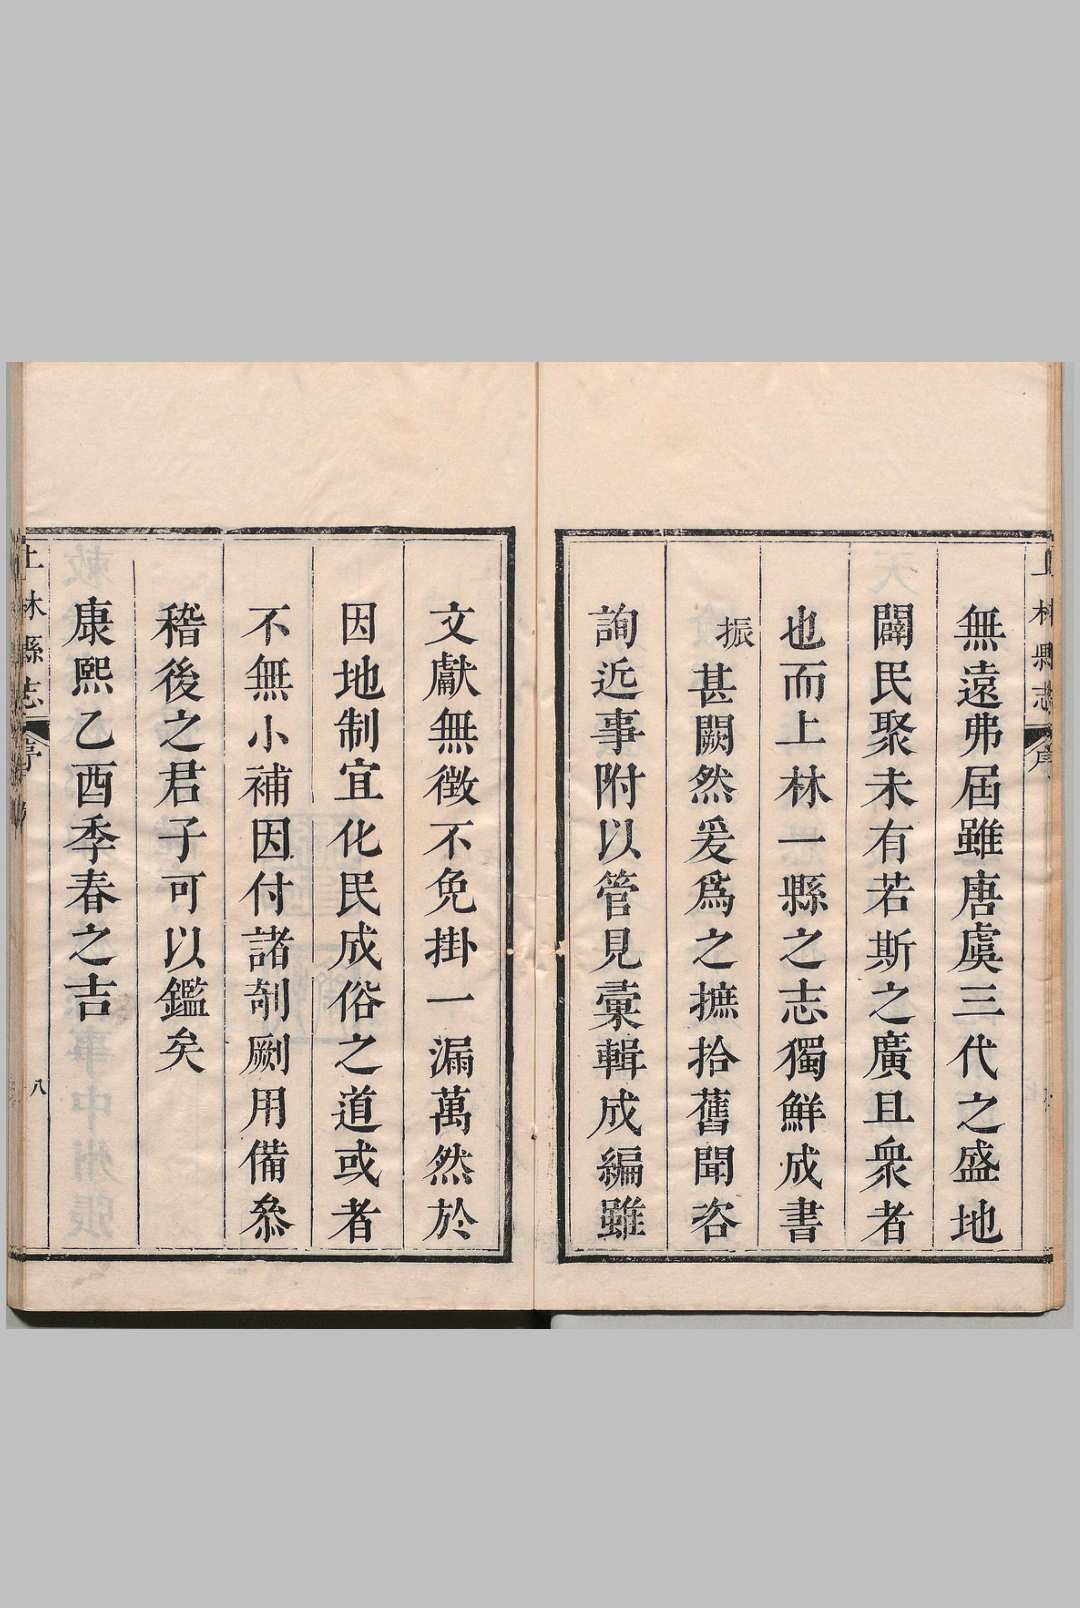 上林縣志
序
無遠弗屆雖唐虞三代之盛地
闢民聚未有若斯之廣且衆者
也而上林一縣之志獨鮮成書
振甚闕然爰爲之摭拾舊聞咨
詢近事附以管見彙輯成編雖
文獻無徵不免掛一漏萬然於
因地制宜化民成俗之道或者
不無小補因付諸剞劂用備叅
稽後之君子可以鑑矣
康熙乙酉季春之吉
上林縣志
序
八